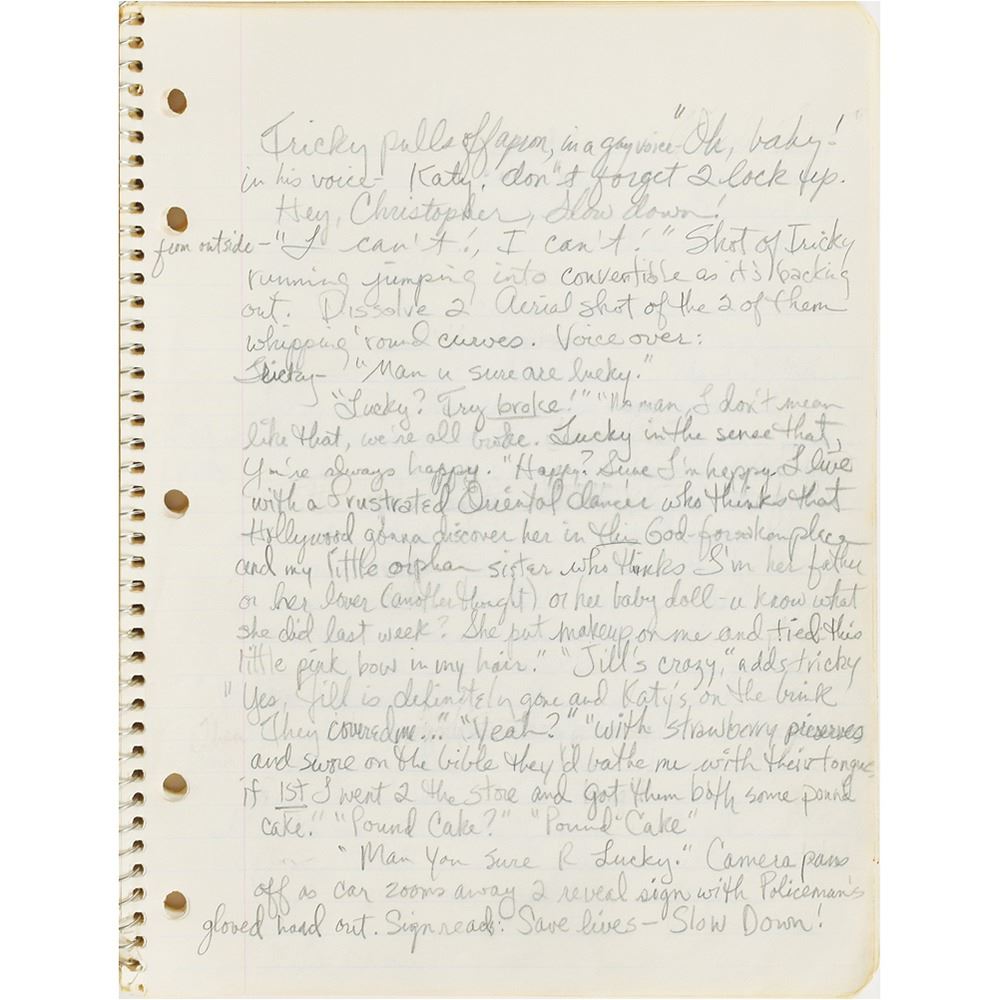 Tricky pulls off apron, in a gay voice - "Oh, baby!"
in his voice - Katy, don't forget 2 lock up.
Hey, Christopher, slow down!
from outside - "I can't!, I can't!" Shot of Tricky
running jumping into convertible as it's backing
out. Dissolve 2 Aerial shot of the 2 of them
whipping 'round curves. Voice over:
Tricky - "Man u sure are lucky."
"Lucky? Try broke!" "No man, I don't mean
like that, we're all broke. Lucky in the sense that,
you're always happy. "Happy? Sure I'm happy. I live
with a frustrated Oriental dancer who thinks that
Hollywood gonna discover her in this God-forsaken place
and my little orphan sister who thinks I'm her father
or her lover (another thought) or her baby doll - u know what
she did last week? She put makeup on me and tied this
little pink bow in my hair." "Jill's crazy," adds tricky
"Yes, Jill is definitely gone and Katy's on the brink
They covered me..." "Yeah?" "with strawberry preserves
and swore on the bible they'd bathe me with their tongue
if 1st I went 2 the store and got them both some pound
cake." "Pound Cake?" "Pound Cake"
"Man You sure R Lucky." Camera pans
off as car zooms away 2 reveal sign with Policeman's
gloved hand out. Sign reads: Save lives - Slow Down!